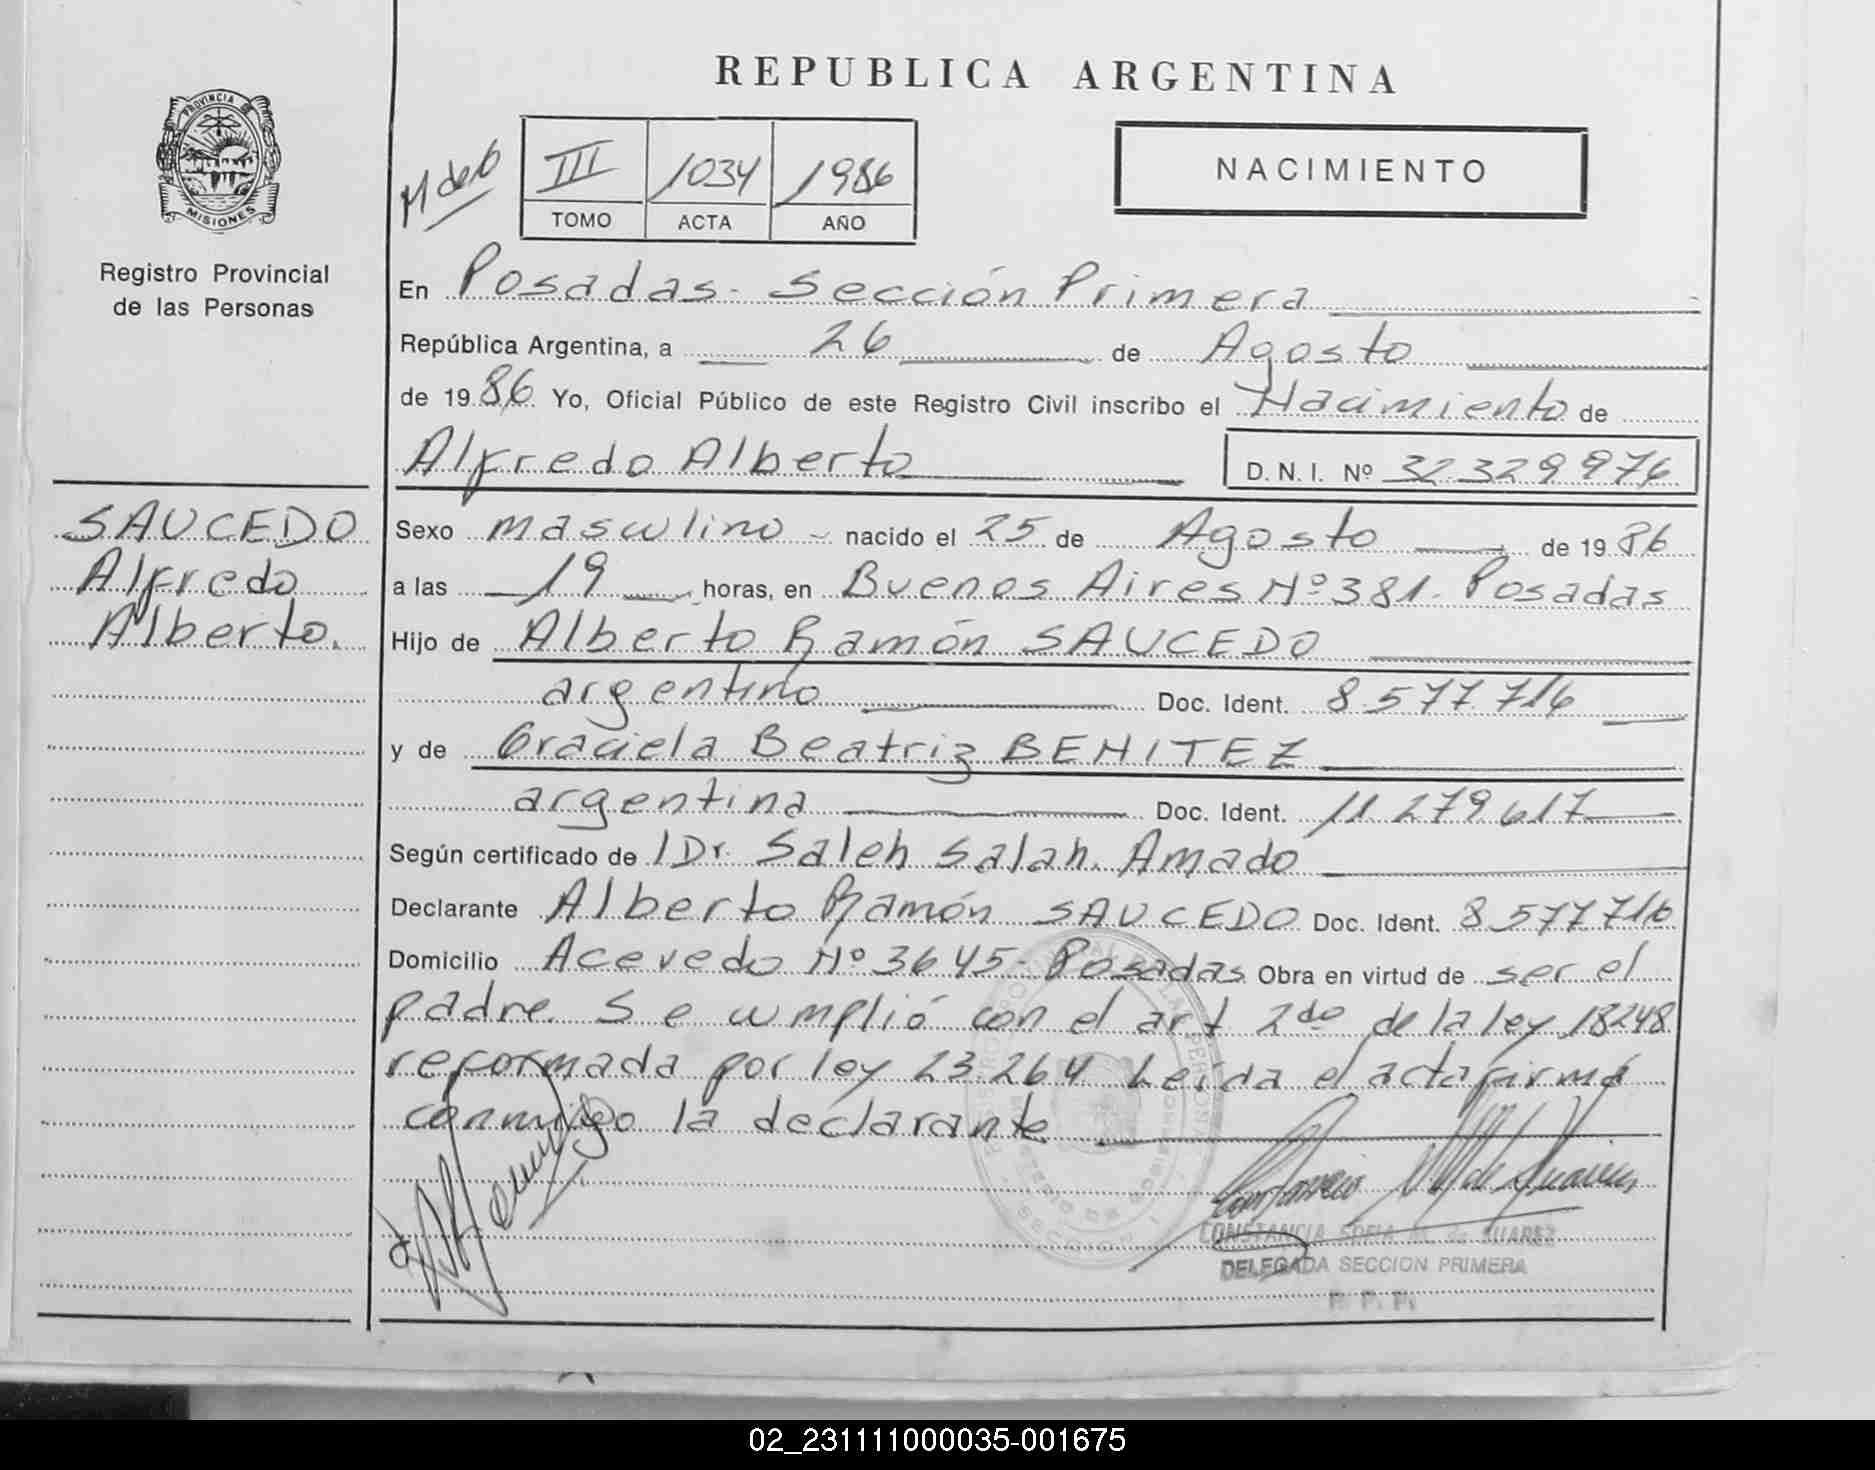 REPUBLICA ARGENTINA
PROVINCIA DE
MISIONES
Registro Provincial
de las Personas
III 1034 1986
TOMO ACTA AÑO
NACIMIENTO
En Posadas - Sección Primera
República Argentina, a 26 de Agosto
de 1986 Yo, Oficial Público de este Registro Civil inscribo el Nacimiento de
Alfredo Alberto
D.N.I. Nº 32.329.976
SAUCEDO
Alfredo
Alberto.
Sexo masculino nacido el 25 de Agosto de 1986
a las 19 horas, en Buenos Aires Nº 381. Posadas
Hijo de Alberto Ramón SAUCEDO
argentino Doc. Ident. 8.577.716
y de Graciela Beatriz BENITEZ
argentina Doc. Ident. 11.279.617
Según certificado de Dr. Saleh Salah. Amado
Declarante Alberto Ramón SAUCEDO Doc. Ident. 8.577.716
Domicilio Acevedo Nº 3645 - Posadas Obra en virtud de ser el
padre. Se cumplió con el art 2do de la ley 18248
reformada por ley 23.264 Leída el acta firma
conmigo la declarante
CONSTANCIA SOFIA M. de SUAREZ
DELEGADA SECCION PRIMERA
R. P. P.
02_231111000035-001675